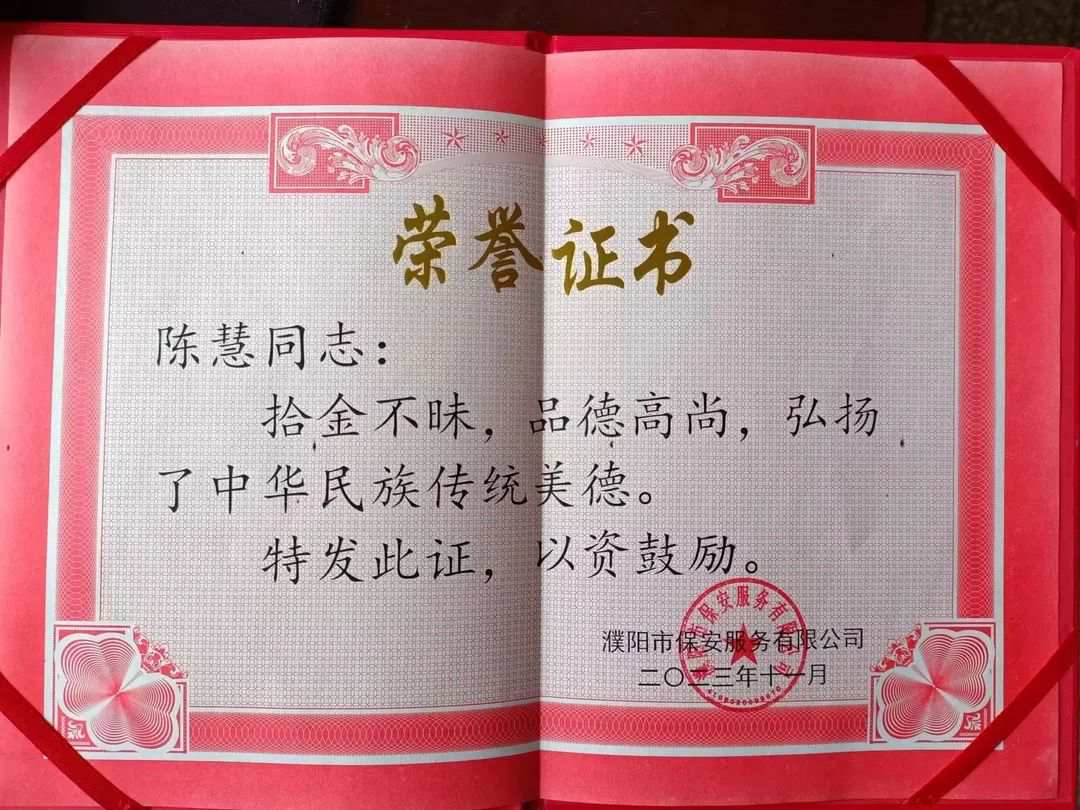 荣誉证书
陈慧同志：
拾金不昧，品德高尚，弘扬
了中华民族传统美德。
特发此证，以资鼓励。
濮阳市保安服务有限公司
二〇二三年十一月
濮阳市保安服务有限公司